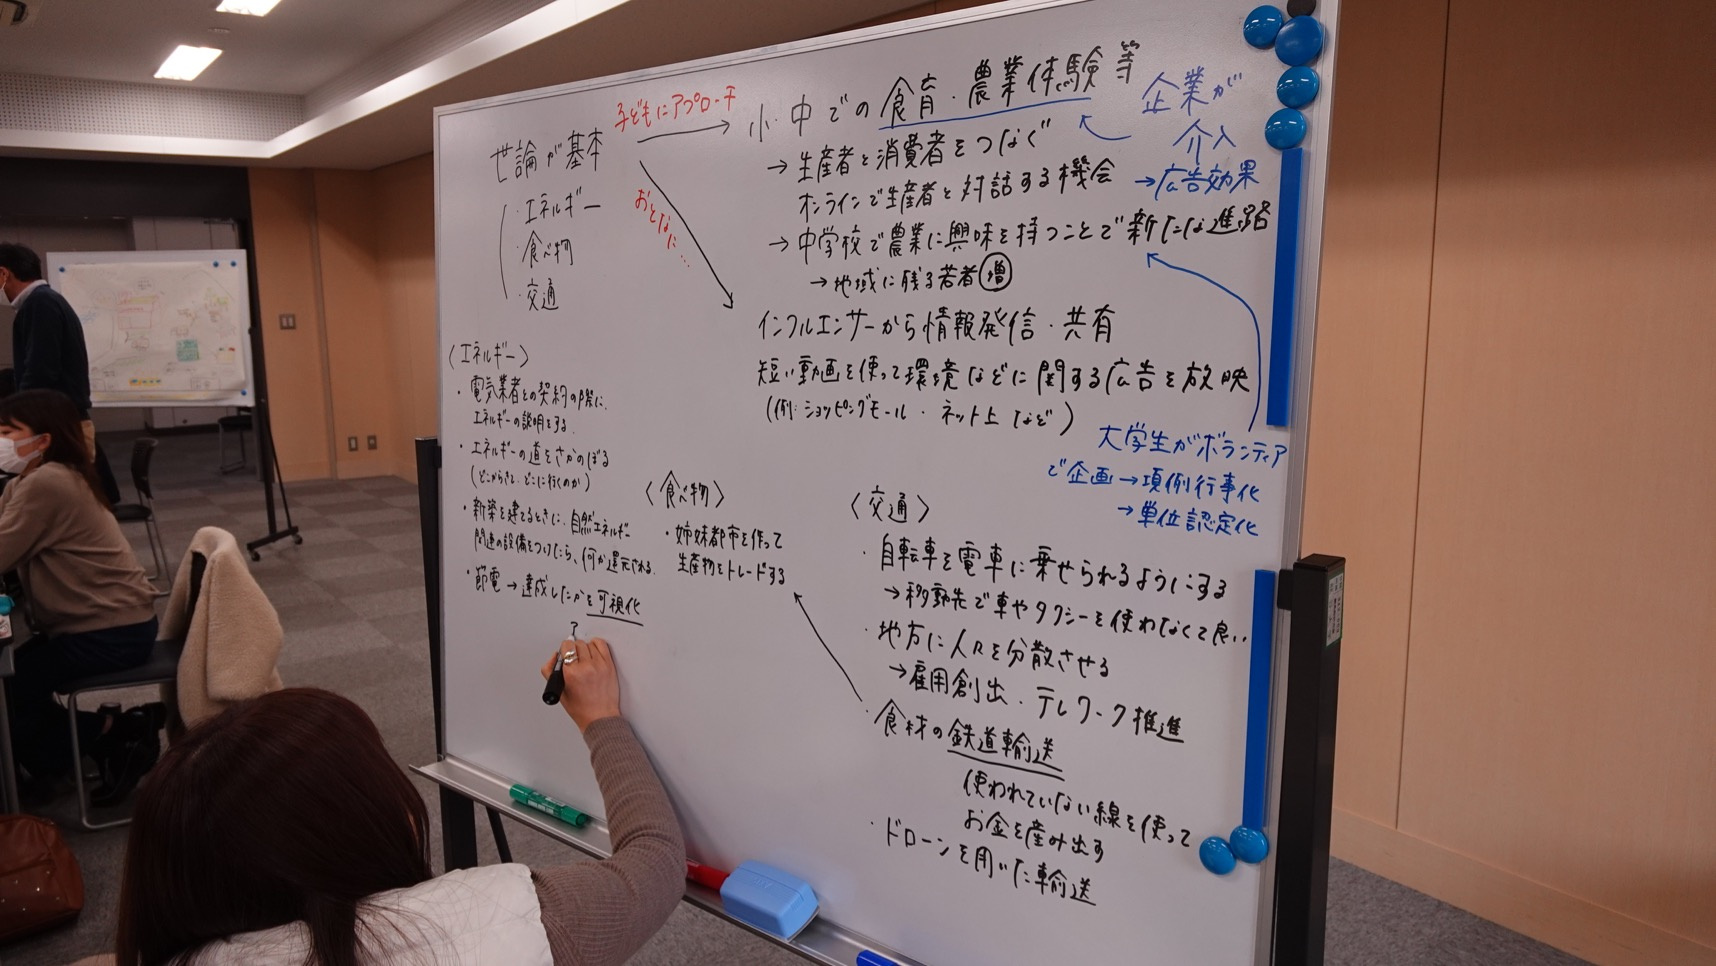 世論が基本
・エネルギー
・食べ物
・交通
子どもにアプローチ
おとなに…
小・中での食育・農業体験等
→生産者と消費者をつなぐ
オンラインで生産者と対話する機会
→中学校で農業に興味を持つことで新たな進路
→地域に残る若者増
企業が
介入
→広告効果
インフルエンサーから情報発信・共有
短い動画を使って環境などに関する広告を放映
(例:ショッピングモール・ネット上など)
大学生がボランティア
で企画→項例行事化
→単位認定化
〈エネルギー〉
・電気業者との契約の際に、
エネルギーの説明をする。
・エネルギーの道をさかのぼる
(どこからきて、どこに行くのか)
・新築を建てるときに、自然エネルギー
関連の設備をつけたら、何か還元される。
・節電→達成したかを可視化
〈食べ物〉
・姉妹都市を作って
生産物をトレードする
〈交通〉
・自転車を電車に乗せられるようにする
→移動先で車やタクシーを使わなくて良い
・地方に人々を分散させる
→雇用創出・テレワーク推進
・食材の鉄道輸送
使われていない線を使って
お金を産み出す
・ドローンを用いた輸送